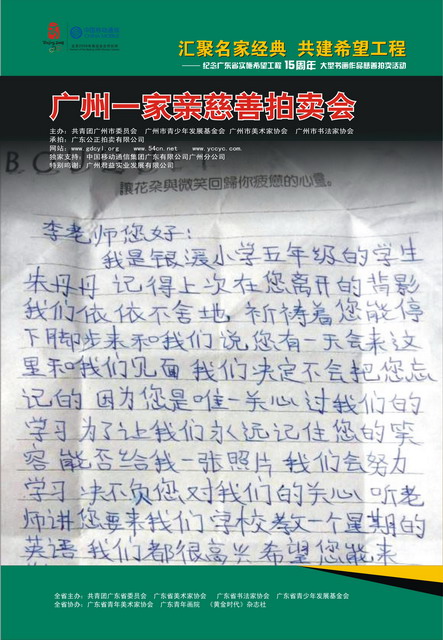 汇聚名家经典 共建希望工程
纪念广东省实施希望工程 15周年 大型书画作品慈善拍卖活动
广州一家亲慈善拍卖会
主办：共青团广州市委员会 广州市青少年发展基金会 广州市美术家协会 广州市书法家协会
承拍：广东公正拍卖有限公司
网站：www.gdcyl.org www.54cn.net www.yccyc.com
独家支持：中国移动通信集团广东有限公司广州分公司
特别鸣谢：广州君益实业发展有限公司
讓花朶與微笑回歸你疲憊的心靈。
李老师您好：
我是银滚小学五年级的学生
朱丹丹 记得上次在您离开的背影
我们依依不舍地 祈祷着您能停
下脚步来和我们说您有一天会来这
里和我们见面 我们决定不会把您忘
记的 因为您是唯一关心过我们的
学习 为了让我们永远记住您的笑
容 能否给我一张照片 我们会努力
学习 决不负您对我们的关心 听老
师讲您要来我们学校教一个星期的
英语 我们都很高兴 希望您能来
全省主办：共青团广东省委员会 广东省美术家协会 广东省书法家协会 广东省青少年发展基金会
全省协办：广东省青年美术家协会 广东青年画院 《黄金时代》杂志社